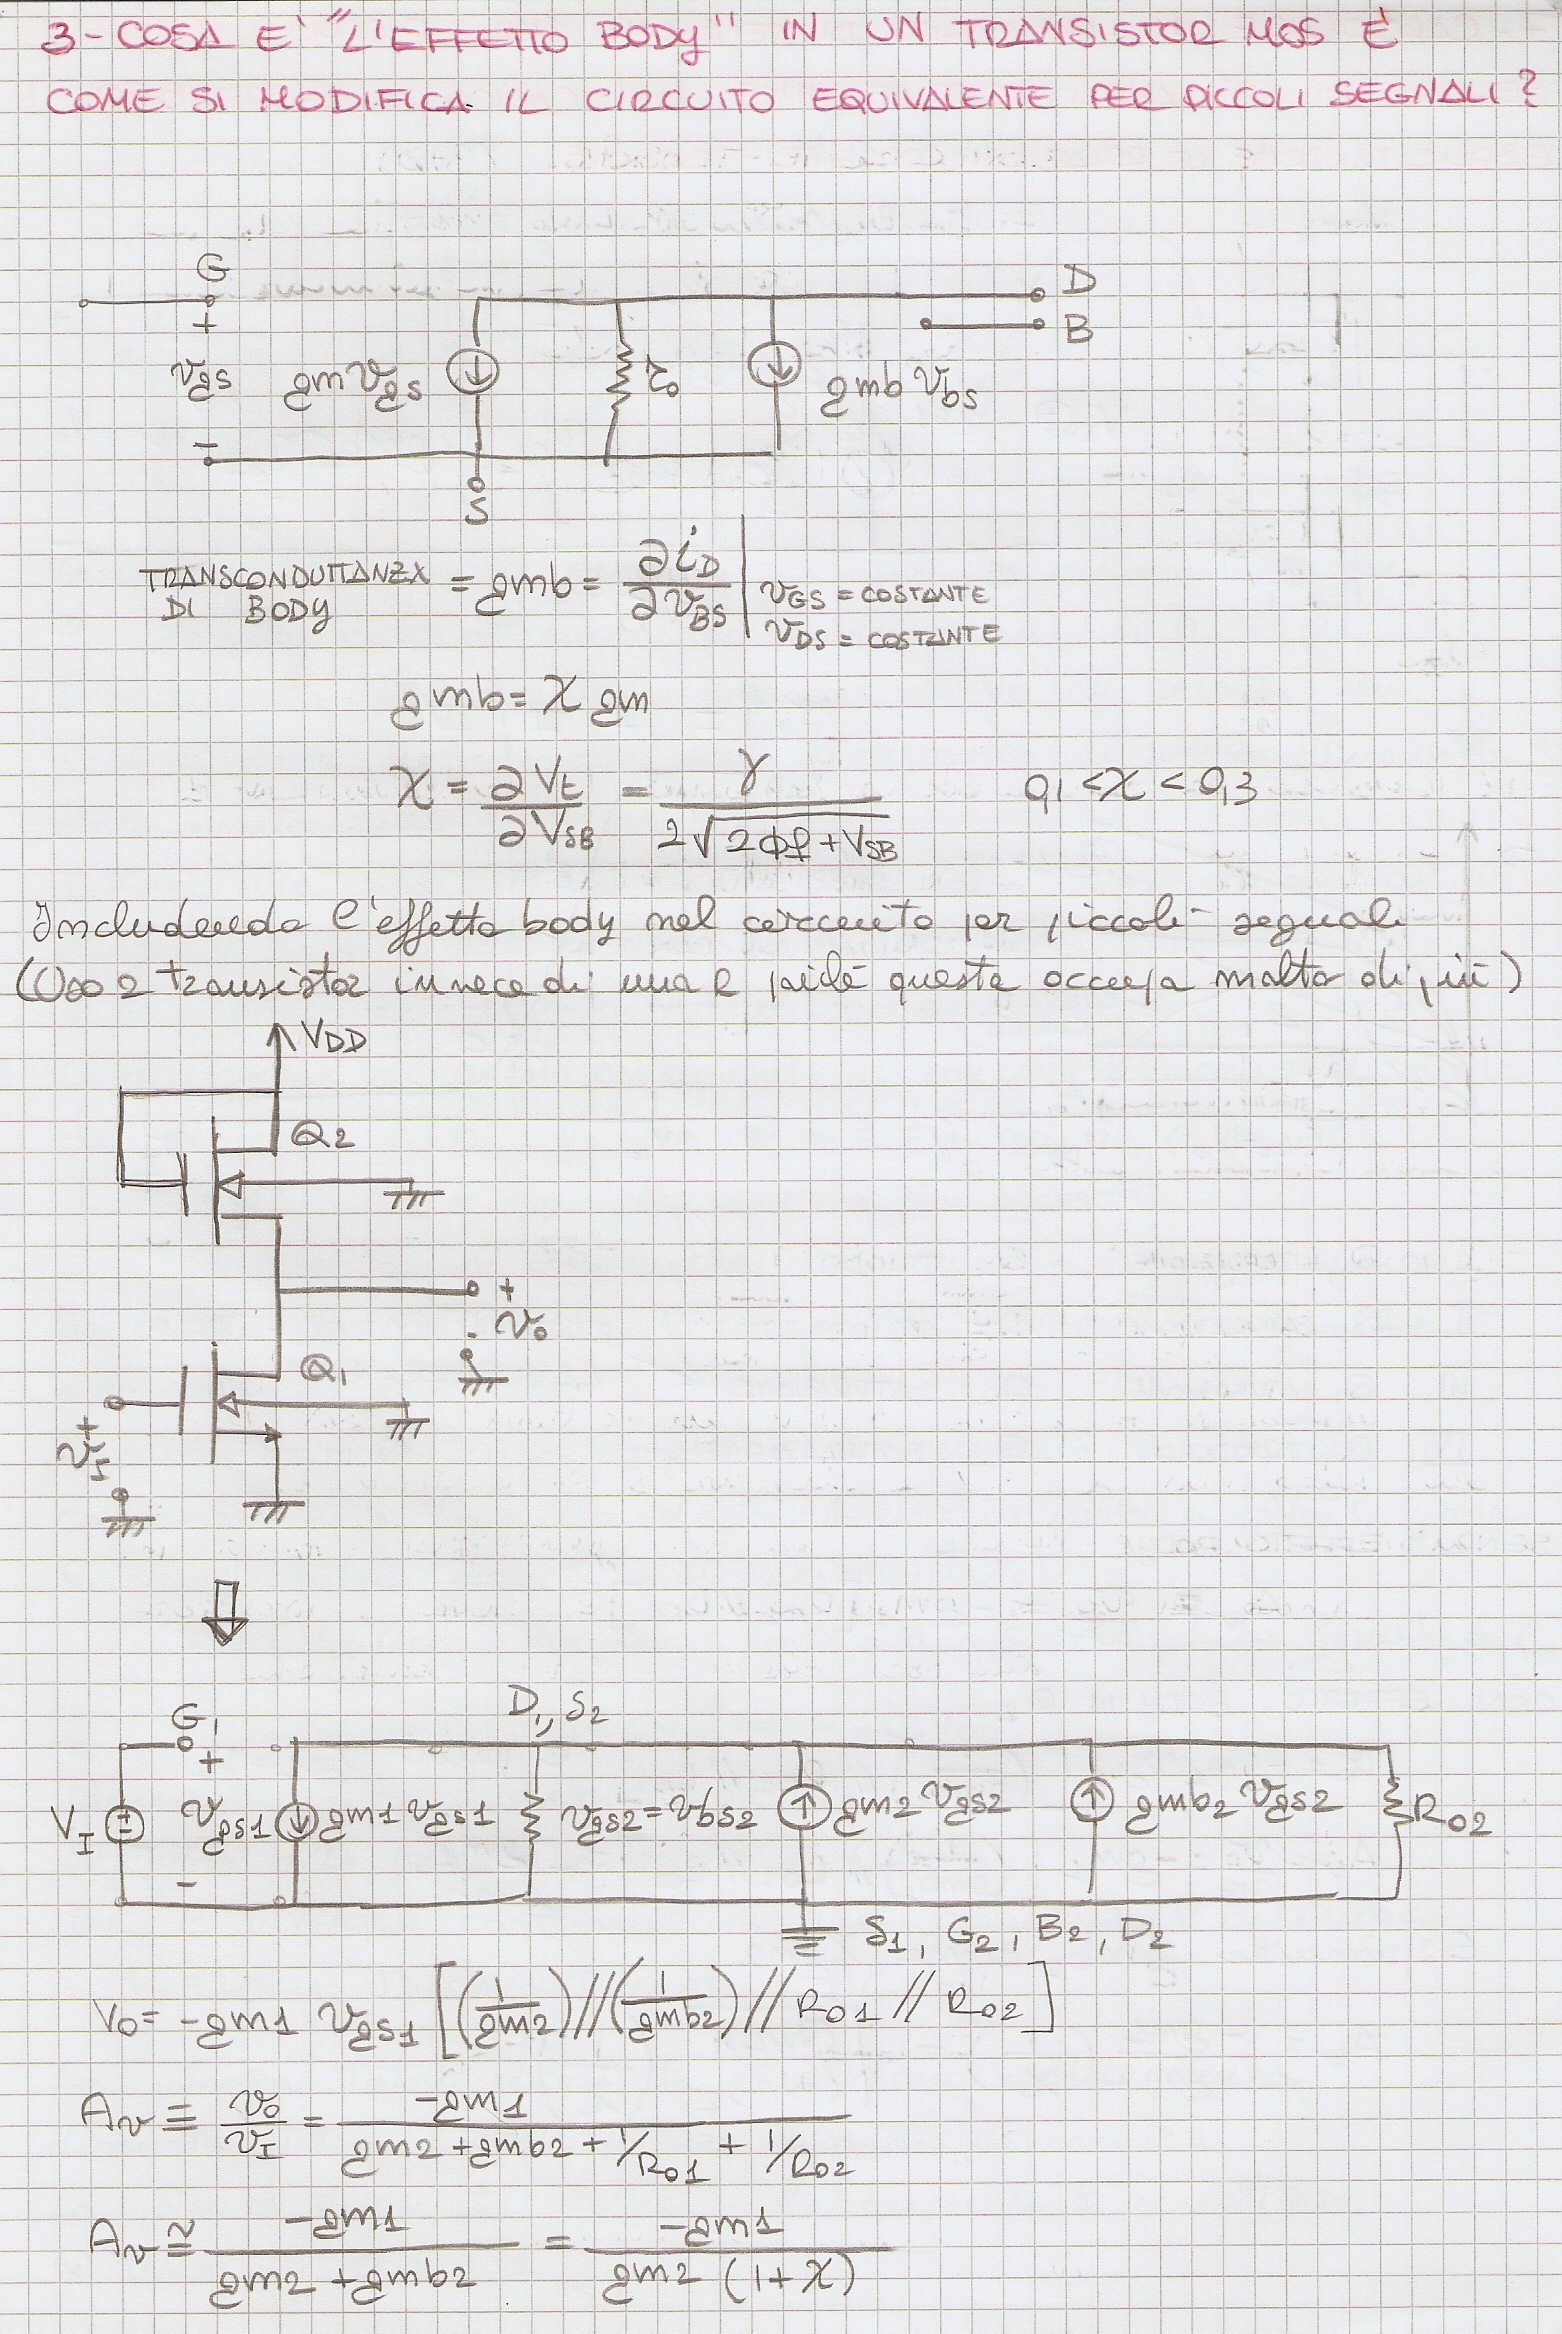 3 - COSA E' "L'EFFETTO BODY" IN UN TRANSISTOR MOS E'
COME SI MODIFICA IL CIRCUITO EQUIVALENTE PER PICCOLI SEGNALI?
G
D
+
B
vgs gmvgs ro gmb vbs
-
S
TRANSCONDUTTANZA DI BODY = gmb = ∂iD/∂vBS | vGS = COSTANTE
vDS = COSTANTE
gmb = χ gm
χ = ∂Vt/∂VSB = γ/(2√(2φf + VSB)) 0,1 < χ < 0,3
Includendo l'effetto body nel circuito per piccoli segnali
(Uso 2 transistor invece di una R poiché questa occupa molto di più)
VDD
Q2
+
- vo
Q1
+
vI
D1, S2
G1
+
VI vgs1 gm1 vgs1 vgs2 = vbs2 gm2 vgs2 gmb2 vgs2 RO2
-
S1, G2, B2, D2
Vo = -gm1 vgs1 [(1/gm2)//(1/gmb2)//RO1//RO2]
Av ≡ vo/vI = -gm1/(gm2 + gmb2 + 1/RO1 + 1/RO2)
Av ≅ -gm1/(gm2 + gmb2) = -gm1/(gm2 (1+χ))